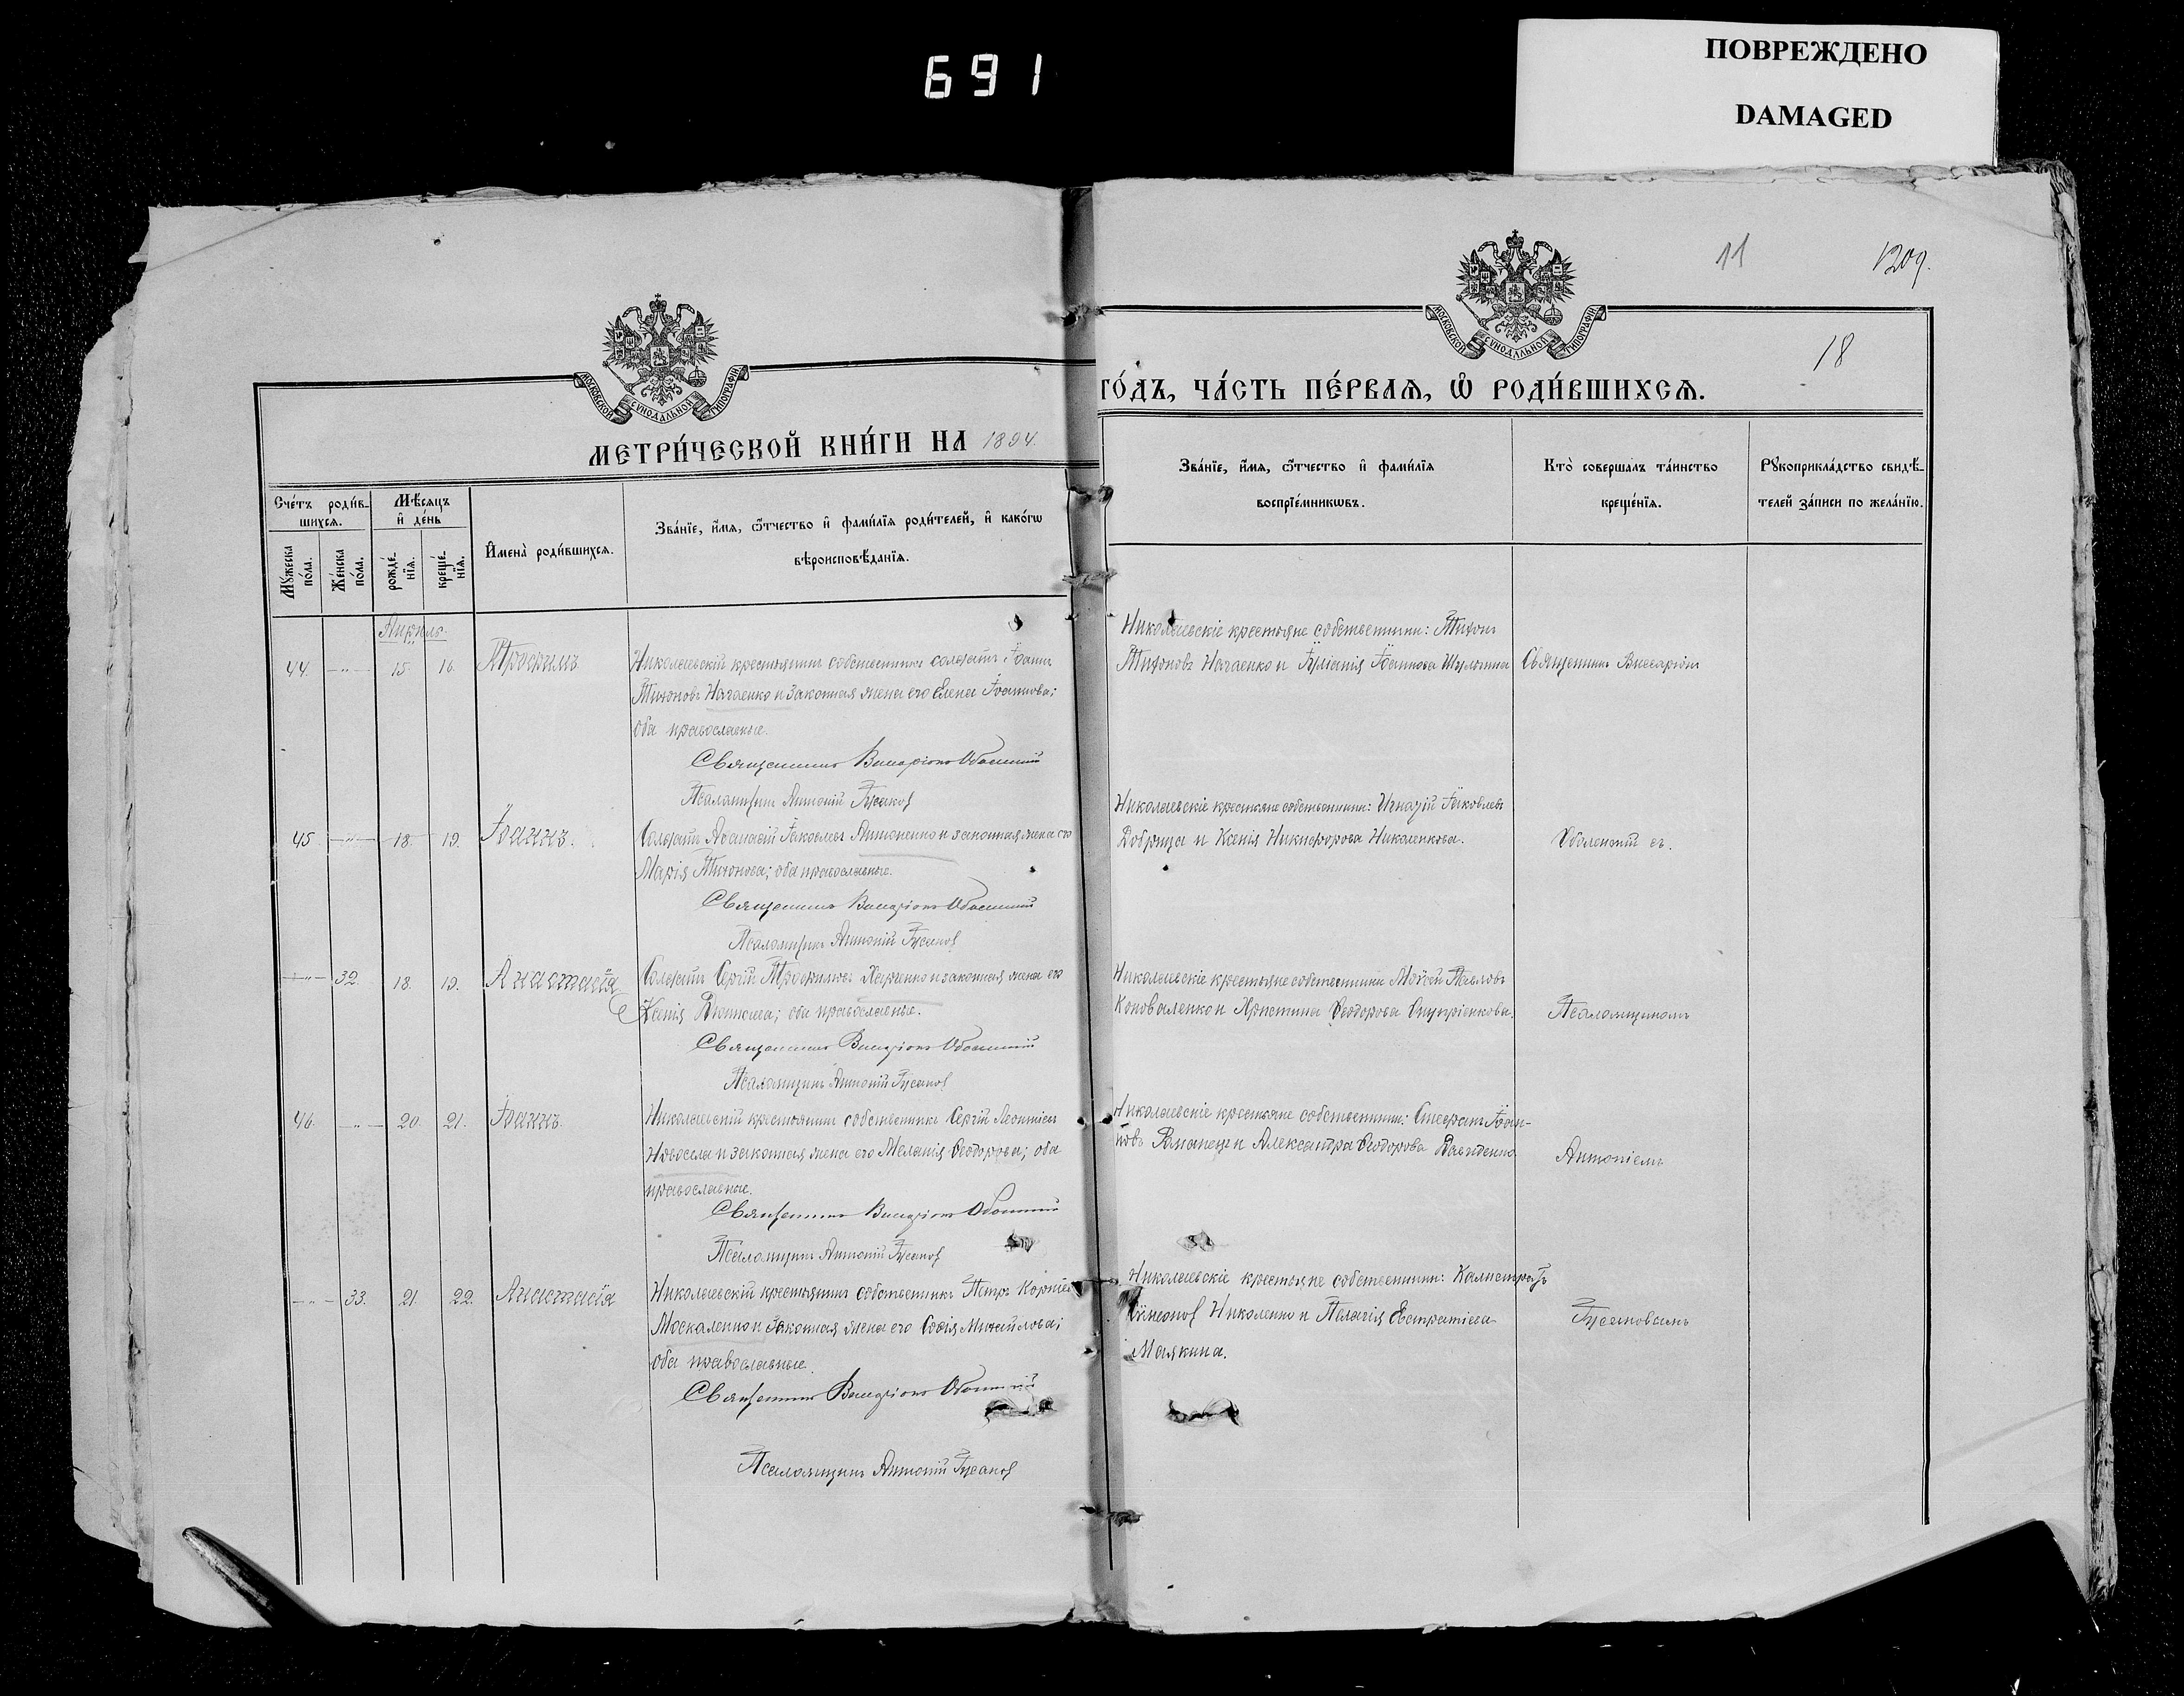 691
ПОВРЕЖДЕНО
DAMAGED
11
1209.
18
МОСКОВСКОЙ СѴНОДАЛЬНОЙ ТИПОГРАФІИ
МОСКОВСКОЙ СѴНОДАЛЬНОЙ ТИПОГРАФІИ
МЕТРИ́ЧЕСКОЙ КНИ́ГИ НА 1894.
ГО́ДЪ, ЧА́СТЬ ПЕ́РВАѦ, Ѡ҆ РОДИ́ВШИХСѦ.
Сче́тъ роди́в-
шихсѧ.
Мѣ́сѧцъ
и҆ де́нь
Мꙋ́жеска
по́ла.
Же́нска
по́ла.
рожде́-
нїѧ.
креще́-
нїѧ.
И҆мена̀ роди́вшихсѧ.
Зва́нїе, и҆́мѧ, ѻ҆́тчество и҆ фами́лїѧ роди́телей, и҆ како́гѡ
вѣроисповѣ́данїѧ.
Зва́нїе, и҆́мѧ, ѻ҆́тчество и҆ фами́лїѧ
воспрїе́мникѡвъ.
Кто̀ соверша́лъ та́инство
креще́нїѧ.
Рꙋкоприкла́дство свидѣ́-
телей за́писи по жела́нїю.
Апрѣль.
44. -"- 15. 16. Трофимъ
Николаевскій крестьянинъ собственникъ солдатъ Іоаннъ
Тихоновъ Нагаенко и законная жена его Елена Іоаннова;
оба православные.
Священникъ Виссаріонъ Оболенскій
Псаломщикъ Антоній Гусаковъ
Николаевскіе крестьяне собственники: Тихонъ
Тихоновъ Нагаенко и Іуліанія Іоаннова
Священникъ Виссаріонъ
45 -"- 18. 19. Іоаннъ.
Солдатъ Аѳанасій Іаковлевъ Антоненко и законная жена его
Марія Тихонова; оба православные.
Священникъ Виссаріонъ Оболенскій
Псаломщикъ Антоній Гусаковъ
Николаевскіе крестьяне собственники: Игнатій Іаковлевъ
Добрица и Ксенія Никифорова Николенкова.
Оболенскій съ
-"- 32. 18. 19. Анастасія
Солдатъ Сергій Трофимовъ Харченко и законная жена его
Ксенія оба православные.
Священникъ Виссаріонъ Оболенскій
Псаломщикъ Антоній Гусаковъ
Николаевскіе крестьяне собственники Моѵсей Павловъ
Коноваленко и Христина Ѳеодорова
Псаломщикомъ
46. -"- 20. 21. Іоаннъ.
Николаевскій крестьянинъ собственникъ Сергій Леонтіевъ
Новосела и законная жена его Меланія Ѳеодорова; оба
православные.
Священникъ Виссаріонъ Оболенскій
Псаломщикъ Антоній Гусаковъ
Николаевскіе крестьяне собственники: Стефанъ Іоан-
новъ и Александра Ѳеодорова Давиденко
Антоніемъ
-"- 33. 21. 22. Анастасія
Николаевскій крестьянинъ собственникъ Петръ Корніев
Москаленко и законная жена его Софія Михайлова;
оба православные.
Священникъ Виссаріонъ Оболенскій
Псаломщикъ Антоній Гусаковъ
Николаевскіе крестьяне собственники: Калистратъ
Сѵмеоновъ Николенко и Пелагія Евстратіева
Маякина.
Гусаковымъ